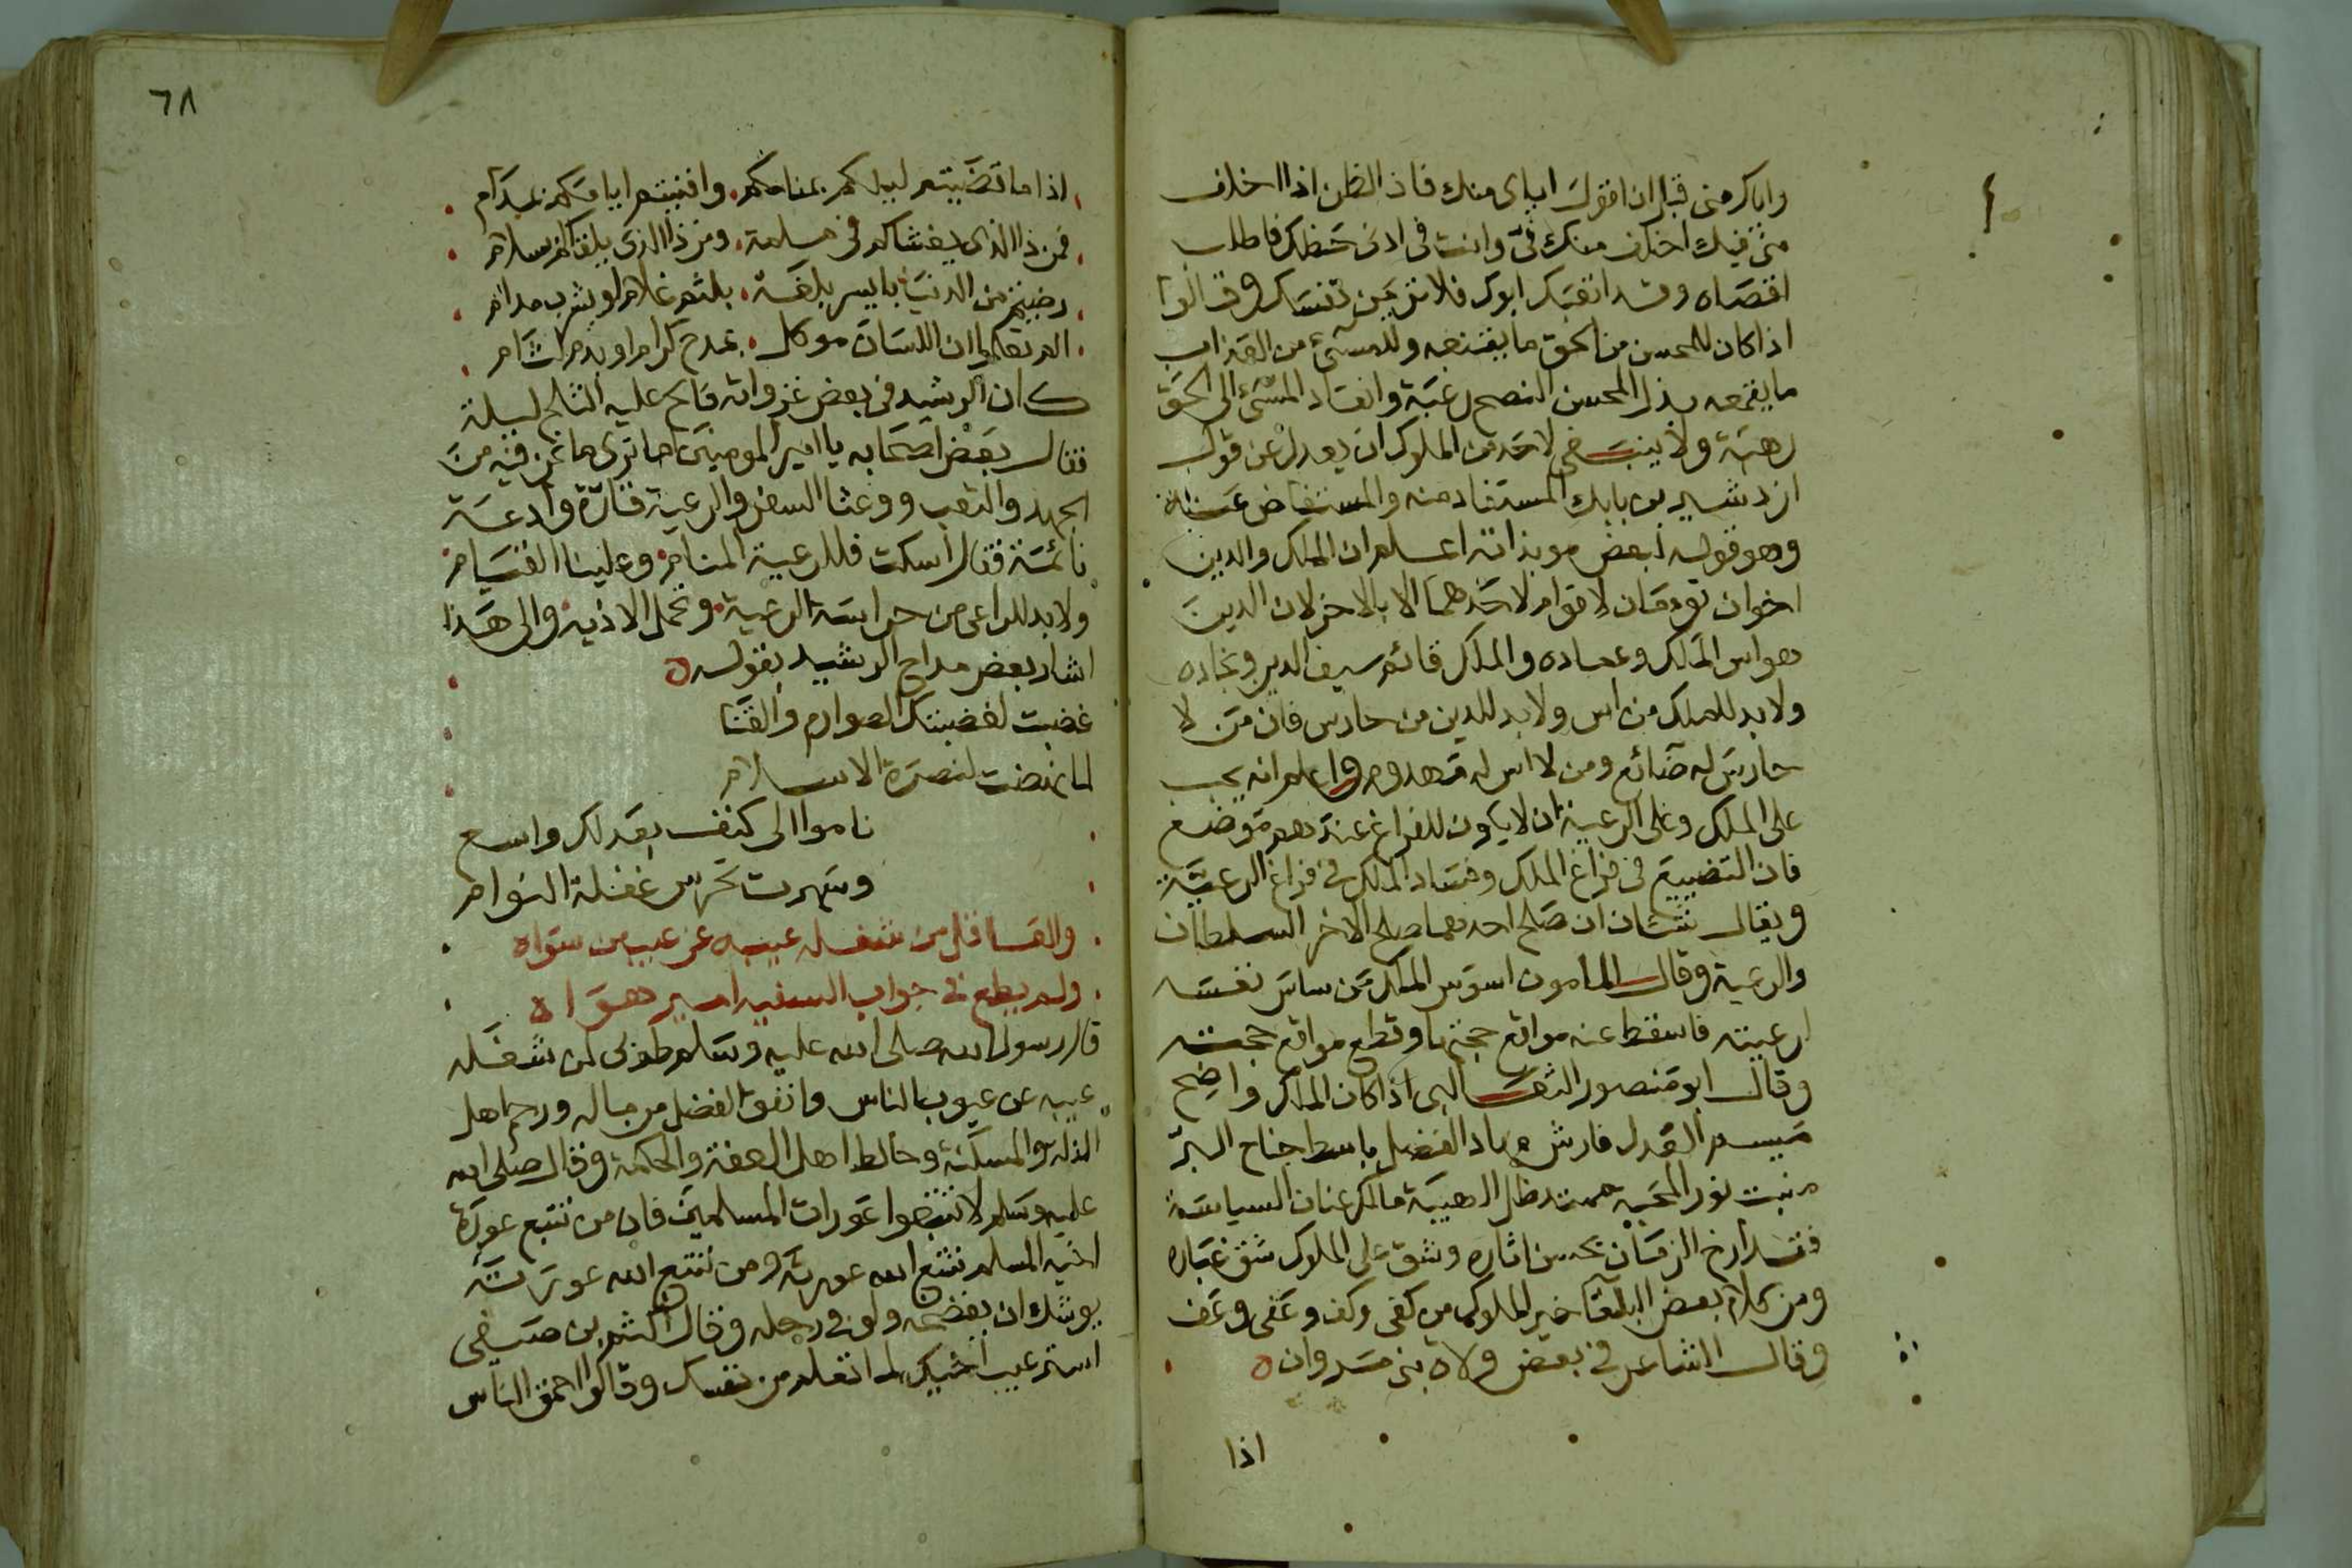 واياك مني قبل ان اقول اياى منك فان الظن اذا اخلف
منى فيك اخلف منك فىّ وانت فى ادنى حظك فاطلب
اقصاه وقد اتعبك ابوك فلا تريحن نفسك وقالوا
اذا كان للمحسن من الحق ما يقنعه وللمسئ من العذاب
ما يقمعه بذل المحسن النصح رغبة وانقاد المسئ الى الحق
رهبة ولا ينبغى لاحد من الملوك ان يعدل عن قول
ازدشير بن بابك المستفاد منه والمستفاض عنه
وهو قوله لبعض موبذاته اعلم ان الملك والدين
اخوان توءمان لا قوام لاحدهما الا بالاخر لان الدين
هو اس الملك وعماده والملك قائم سيف الدين ونجاده
ولا بد للملك من اس ولا بد للدين من حارس فان من لا
حارس له ضائع ومن لا اس له مهدوم واعلم انه يجب
على الملك وعلى الرعية ان لا يكون للفراغ عندهم موضع
فان التضييع فى فراغ الملك وفساد الملك فى فراغ الرعية
ويقال شيئان ان صلح احدهما صلح الاخر السلطان
والرعية وقال المامون اسوس الملوك من ساس نفسه
لرعيته فاسقط عنه مواقع حجتها وقطع مواقع حجته
وقال ابو منصور الثعالبى اذا كان الملك واضح
ميسم العدل فارش مهاد الفضل باسط جناح البرّ
منبت نور المحبه ممتد ظل الهيبة مالك عنان السياسة
فقد ارخ الزمان بحسن اثاره وشق على الملوك شق غباره
ومن كلام بعض البلغا خير الملوك من كفى وكف وعفى وعف
وقال الشاعر فى بعض ولاة بنى مروان ه
اذا
٦٨
اذا ما قضيتم ليلكم بمنامكم . وافنيتم ايامكم بمدام
فمن ذا الذى يغشاكم فى ملمة . ومن ذا الذى يلقاكم بسلام
رضيتم من الدنيا بايسر بلغة . بلثم غلام او بشرب مدام
الم تعلموا ان اللسان موكل . بمدح كرام او بذم لئام
كان الرشيد فى بعض غزواته فالح عليه الثلج ليلة
فقال بعض اصحابه يا امير المومنين اما ترى ما نحن فيه من
الجهد والتعب ووعثا السفر والرعية قارّة وادعة
نائمة فقال اسكت فللرعية المنام وعلينا القيام
ولا بد للراعى من حراسة الرعية وتحمل الاذيه والى هذا
اشار بعض مداح الرشيد بقوله ه
غضبت لغضبتك الصوارم والقنا
لما نهضت لنصرة الاسلام
ناموا الى كنف بعدلك واسع
وسهرت تحرس غفلة النوام
والعاقل من شغله عيبه عن عيب من سواه
ولم يطع فى جواب السفيه امير هواه
قال رسول الله صلى الله عليه وسلم طوبى لمن شغله
عيبه عن عيوب الناس وانفق الفضل من ماله ورحم اهل
الذلة والمسكنة وخالط اهل العفة والحكمة وقال صلى الله
عليه وسلم لا تتبعوا عورات المسلمين فان من تتبع عورة
اخيه المسلم تتبع الله عورته ومن تتبع الله عورته
يوشك ان يفضحه ولو فى رحله وقال اكثم بن صيفى
استر عيب اخيك لما تعلم من نفسك وقالوا احمق الناس